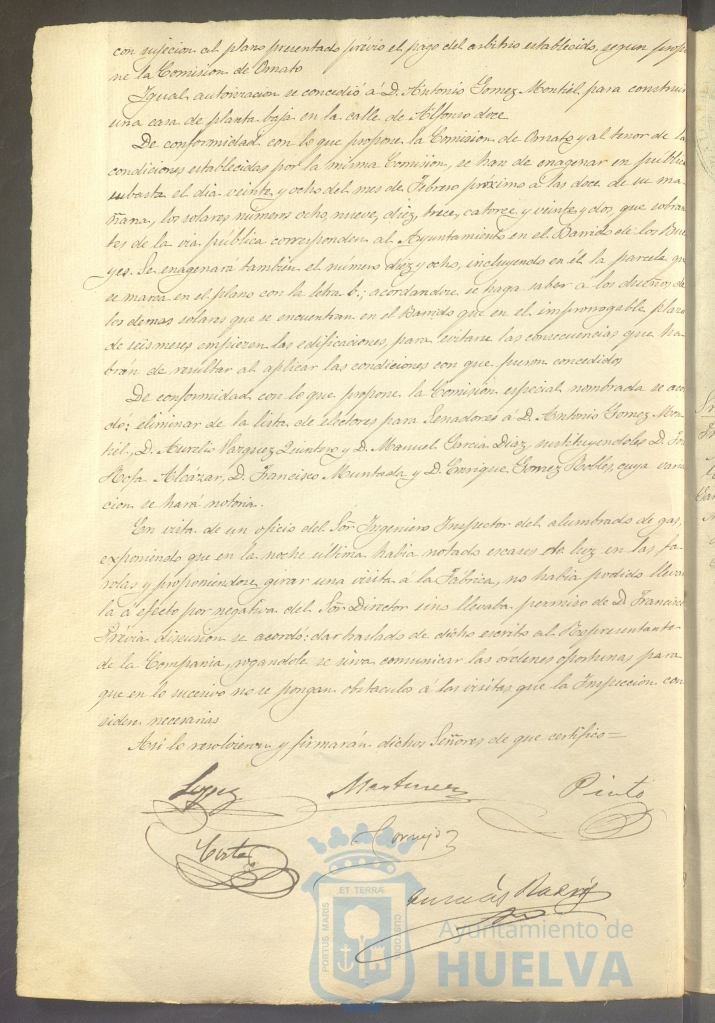 con sujecion al plano presentado prévio el pago del arbitrio establecido, segun propo
ne la Comision de Ornato
Igual autorizacion se concedió á D. Antonio Gomez Montiel para construir
una casa de planta baja en la calle de Alfonso doce
De conformidad con lo que propone la Comision de Ornato y al tenor de la
condiciones establecidas por la misma Comision, se han de enagenar en públic
subasta el dia veinte y ocho del mes de Febrero próximo á las doce de su ma
ñana, los solares números ocho, nueve, diez, trece, catorce y veinte y dos, que sobran
tes de la via pública corresponden al Ayuntamiento en el Barrido de los Bue
yes. Se enagenará tambien el número diez y ocho, incluyendo en él la parcela qu
se marca en el plano con la letra b.; acordandose se haga saber á los dueños de
los demas solares que se encuentran en el Barrido que en el improrrogable plazo
de seis meses empiezen las edificaciones, para evitarse las consecuencias que ha
bran de resultar al aplicar las condiciones con que fueron concedidos
De conformidad con lo que propone la Comision especial nombrada se acor
dó: eliminar de la lista de electores para Senadores á D. Antonio Gomez Mon
tiel, D. Aurelio Vazquez Quintero y D. Manuel Garcia Diaz, sustituyendoles D. Jo
Rofa Alcázar, D. Francisco Muntada y D. Enrique Gomez Robles, cuya varia
cion se hará notoria.
En vista de un oficio del Sor. Ingeniero Inspector del alumbrado de gas,
exponiendo que en la noche ultima habia notado escases de luz en las fa
rolas y proponiendose girar una visita á la Fábrica, no habia podido llevar
la á efecto por negativa del Sor. Director sino llevaba permiso de D. Francisco
Prévia discusion se acordó: dar traslado de dicho escrito al Representante
de la Compania, rogandole se sirva comunicar las órdenes oportunas para
que en lo sucesivo no se pongan obstaculos á las visitas que la Inspeccion con
sidere necesarias
Asi lo resolvieron y firmarán dichos Señores de que certifico=
Lopez Martinez Pinto
Corte Cornejo
ET TERRÆ
PORTUS MARIS
CUSTODIA
Ayuntamiento de
HUELVA